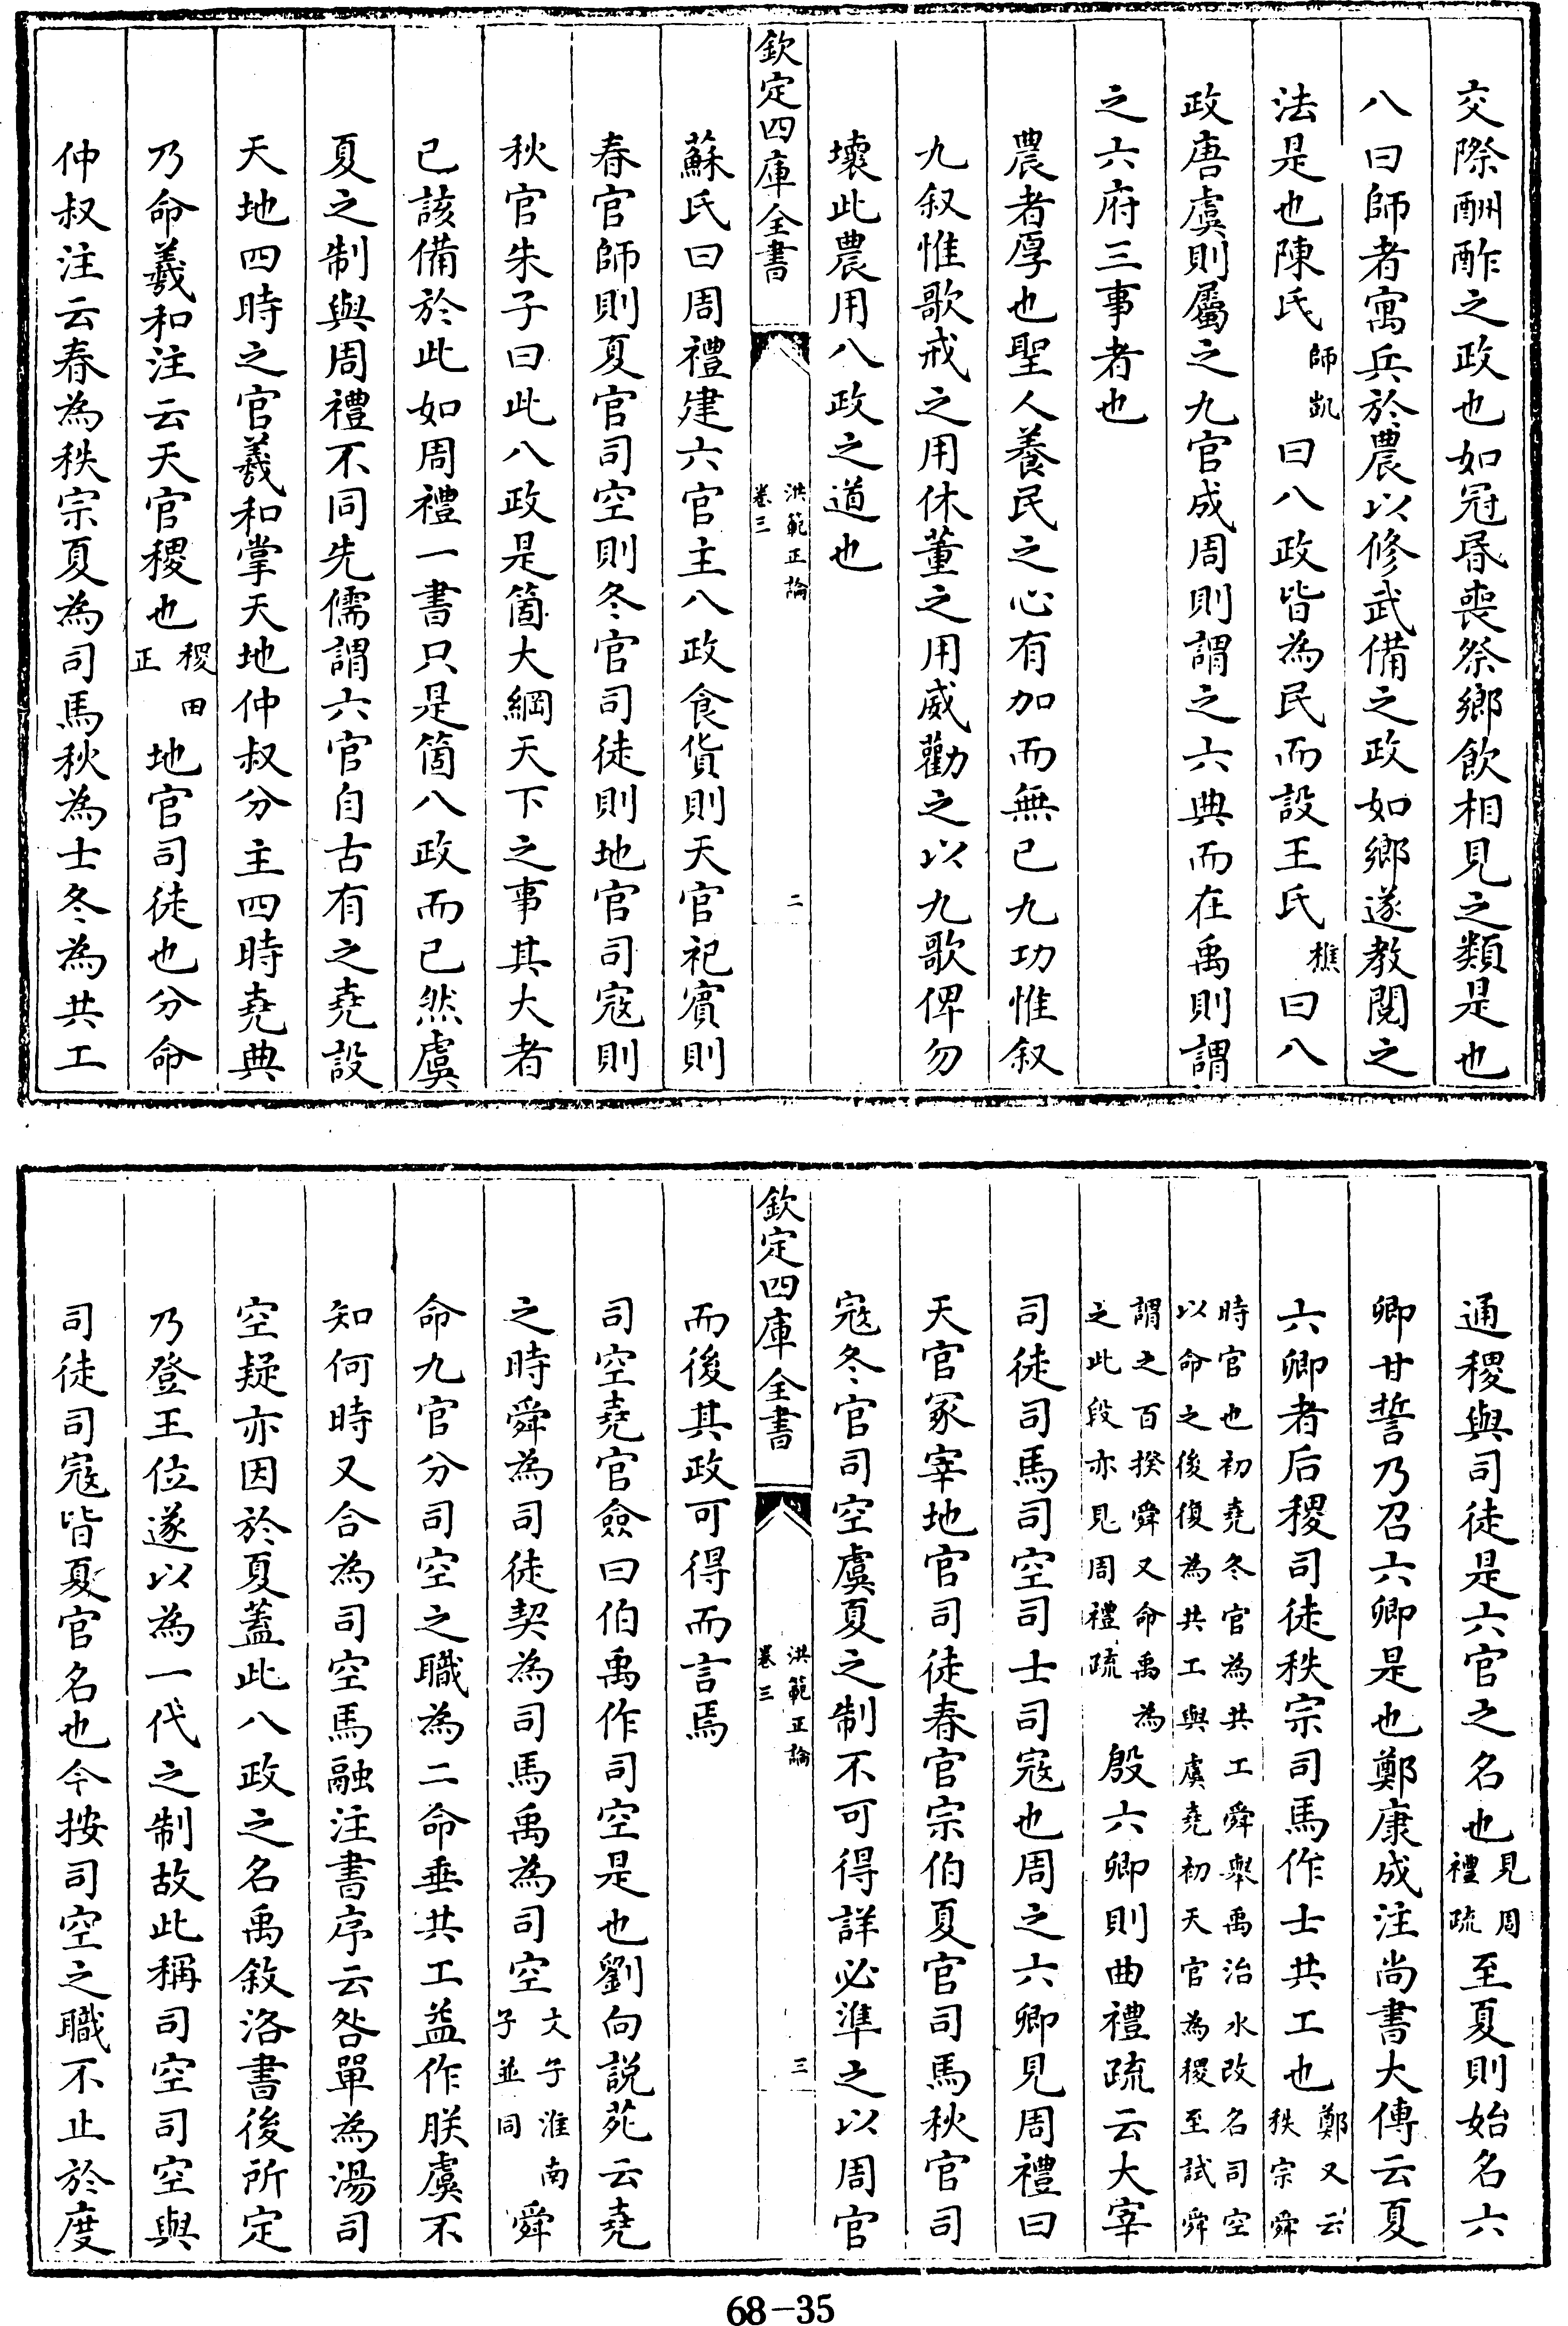 交際酬酢之政也如冠昏喪祭鄉飲相見之類是也
八曰師者寓兵於農以修武備之政如鄉遂教閱之
法是也陳氏師凱曰八政皆為民而設王氏樵曰八
政唐虞則屬之九官成周則謂之六典而在禹則謂
之六府三事者也
農者厚也聖人養民之心有加而無已九功惟叙
九叙惟歌戒之用休董之用威勸之以九歌俾勿
壞此農用八政之道也
欽定四庫全書
洪範正論
卷三
二
蘇氏曰周禮建六官主八政食貨則天官祀賓則
春官師則夏官司空則冬官司徒則地官司寇則
秋官朱子曰此八政是箇大綱天下之事其大者
已該備於此如周禮一書只是箇八政而已然虞
夏之制與周禮不同先儒謂六官自古有之堯設
天地四時之官羲和掌天地仲叔分主四時堯典
乃命羲和注云天官稷也稷田正地官司徒也分命
仲叔注云春為秩宗夏為司馬秋為士冬為共工
通稷與司徒是六官之名也見周禮疏至夏則始名六
卿甘誓乃召六卿是也鄭康成注尚書大傳云夏
六卿者后稷司徒秩宗司馬作士共工也鄭又云秩宗舜
時官也初堯冬官為共工舜舉禹治水改名司空
以命之後復為共工與虞堯初天官為稷至試舜
謂之百揆舜又命禹為
之此段亦見周禮疏
殷六卿則曲禮疏云大宰
司徒司馬司空司士司寇也周之六卿見周禮曰
天官冢宰地官司徒春官宗伯夏官司馬秋官司
寇冬官司空虞夏之制不可得詳必準之以周官
欽定四庫全書
洪範正論
卷三
三
而後其政可得而言焉
司空堯官僉曰伯禹作司空是也劉向說苑云堯
之時舜為司徒契為司馬禹為司空文子淮南子並同舜
命九官分司空之職為二命垂共工益作朕虞不
知何時又合為司空馬融注書序云咎單為湯司
空疑亦因於夏蓋此八政之名禹敘洛書後所定
乃登王位遂以為一代之制故此稱司空司空與
司徒司寇皆夏官名也今按司空之職不止於度
68-35